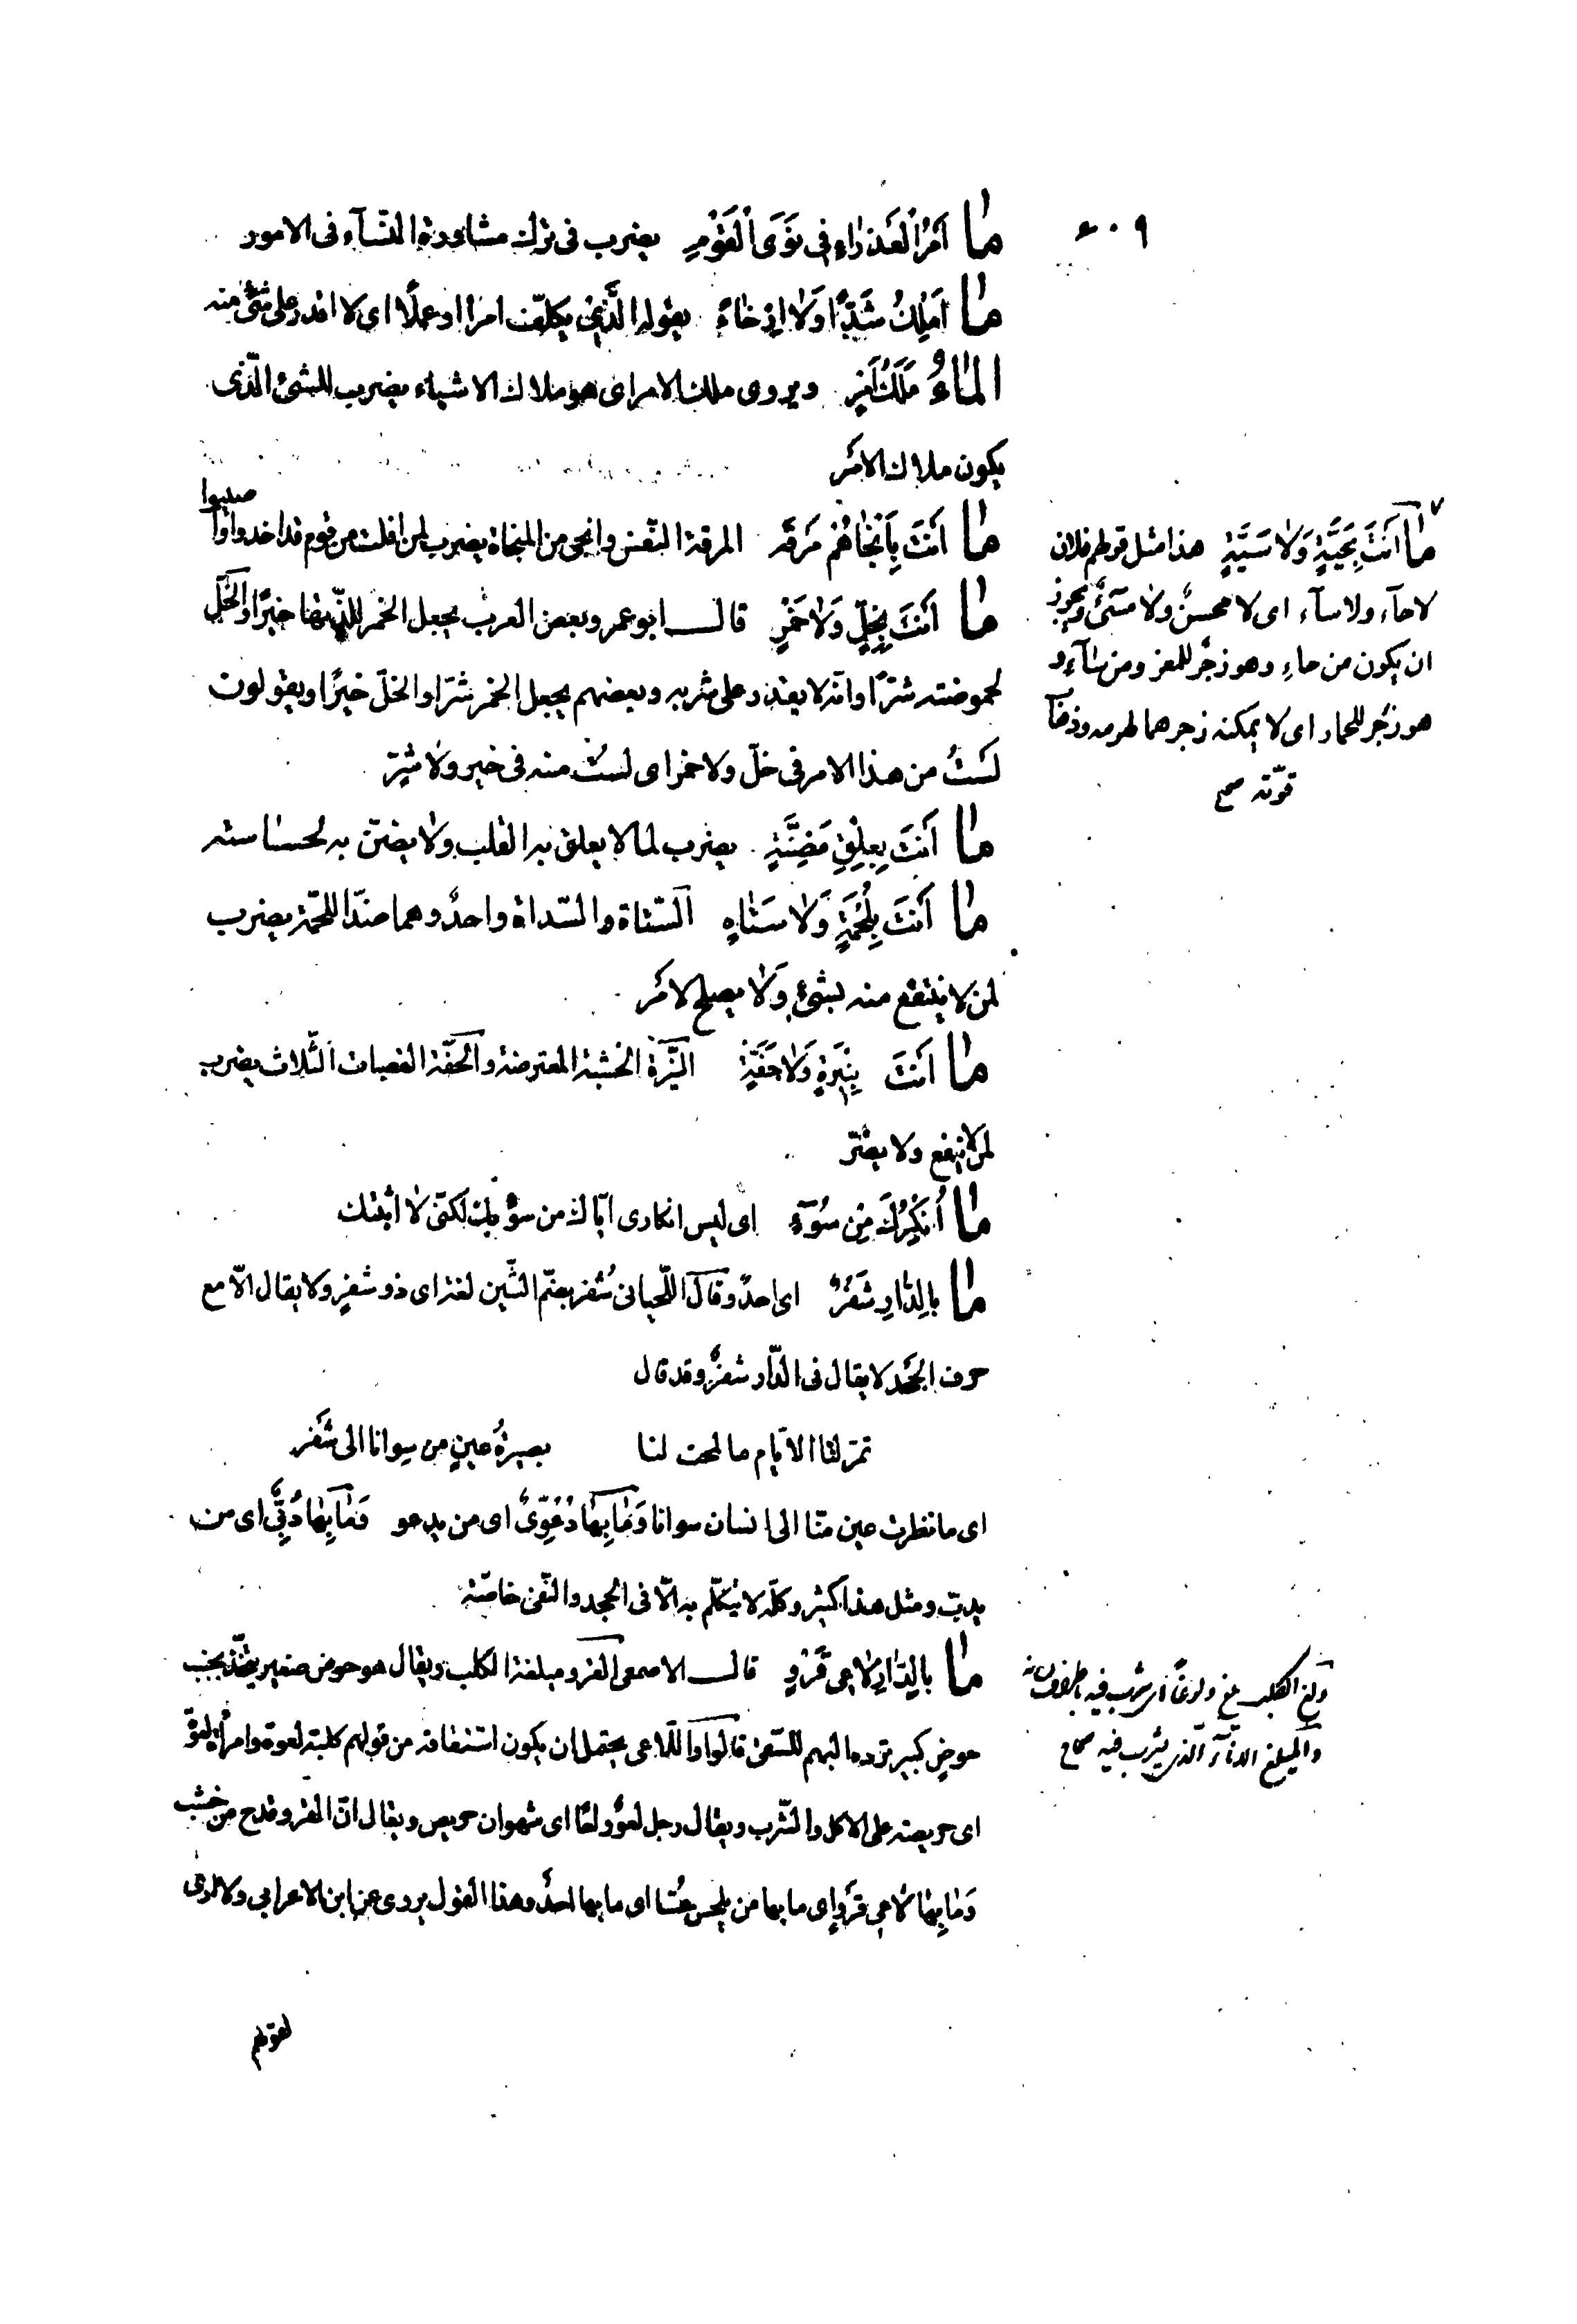 ما أَمْرُ الْعَذْرَاءِ فِي نَوَى الْقَوْمِ يضرب فى ترك مشاورة النّسآء فى الامور
ما أَمْلِكُ شَدًّا وَلَا إِرْخَاءً يقوله الَّذى يكلّف امرا او عملًا اى لا اقدر على شئ منه
الْمَاءُ مَلَكُ أَمْرٍ ويروى ملك الامر اى هو ملاك الاشياء يضرب للشئ الّذى
يكون ملاك الامر
ما أَنْتَ بِأَنْجَاهُمْ مَرَقَةً المرقة النّفس وانجى من النجاة يضرب لمن افلت من قوم قد اخذوا واصيبوا
ما أَنْتَ بِخَلٍّ وَلَا خَمْرٍ قال ابو عمرو بعض العرب يجعل الخمر للذّتها خيرًا والخلّ
لحموضته شرًّا وانّه لا يقدر على شربه وبعضهم يجعل الخمر شرّا والخلّ خيرًا ويقولون
لَسْتُ من هذا الامر فى خلّ ولا خمر اى لستُ منه فى خير ولا شرّ
ما أَنْتَ بِعِلْقِ مَضِنَّةٍ يضرب لما لا يعلق به القلب ولا يضنّ به لخساسته
ما أَنْتَ بِلُحْمَةٍ وَلَا سَتَاةٍ السّتاة والسّداة واحدٌ وهما ضدّا اللّحمة يضرب
لمن لا ينتفع منه بشئ ولا يصلح لامر
ما أَنْتَ بِنِيرَةٍ وَلَا حَفَّةٍ النِّيرَة الخشبة المعترضة والحفّة القصبات الثّلاث يضرب
لمن لا ينفع ولا يضرّ
ما أُنْكِرُكَ مِنْ سُوءٍ اى ليس انكارى ايّاك من سوء بك لكنّى لا اثبتك
ما بِالدَّارِ شَفْرٌ اى احدٌ وقال اللّحيانى شُفر بضمّ الشّين لغة اى ذو شفرٍ ولا يقال الّا مع
حرف الجحد لا يقال فى الدّار شفرٌ وقد قال
تمرّ لنا الايّام ما لمحت لنا بصيرةُ عينٍ من سِوانا الى شَفر
اى ما نظرت عين منّا الى انسان سوانا وَمَا بِهَا دُعْوِيٌّ اى من يدعو وَمَا بِهَا دُبِّيٌّ اى من
يدبّ ومثل هذا كثير وكلّه لا يتكلّم به الّا فى الجحد والنّفى خاصّة
ما بِالدَّارِ لَاعِي قَرْوٍ قال الاصمعى القرو ميلغة الكلب ويقال هو حوض صغير يتّخذ بجنب
حوضٍ كبير ترده البهم للسّقى قالوا واللّاعى يحتمل ان يكون اشتقاقه من قولهم كلبة لعوة وامرأة لعوة
اى حريصة على الاكل والشّرب ويقال رجل لعوٌ ولعًا اى شهوان حريص ويقال انّ القرو قدح من خشب
وَمَا بِهَا لَاعِي قَرْوٍ اى ما بها من يلحس عُسًّا اى ما بها احدٌ وهذا القول يروى عن ابن الاعرابي ولا ارى
لقولهم
٦٠٩
ما أَنْتَ بِحَيَّةٍ وَلَا سَيَّةٍ هذا مثل قولهم فلان
لا حآء ولا سآء اى لا محسنٌ ولا مسئٌ ويجوز
ان يكون من حاءِ وهو زجرٌ للمعز ومن سآءِ و
هو زجر للحمار اى لا يمكنه زجرهما لهرمه وذهاب
قوّته صح
ولغ الكلب يلغ ولوغًا اى شرب فيه باطراف لسانه
والميلغ الانآء الّذى يشرب فيه صحاح